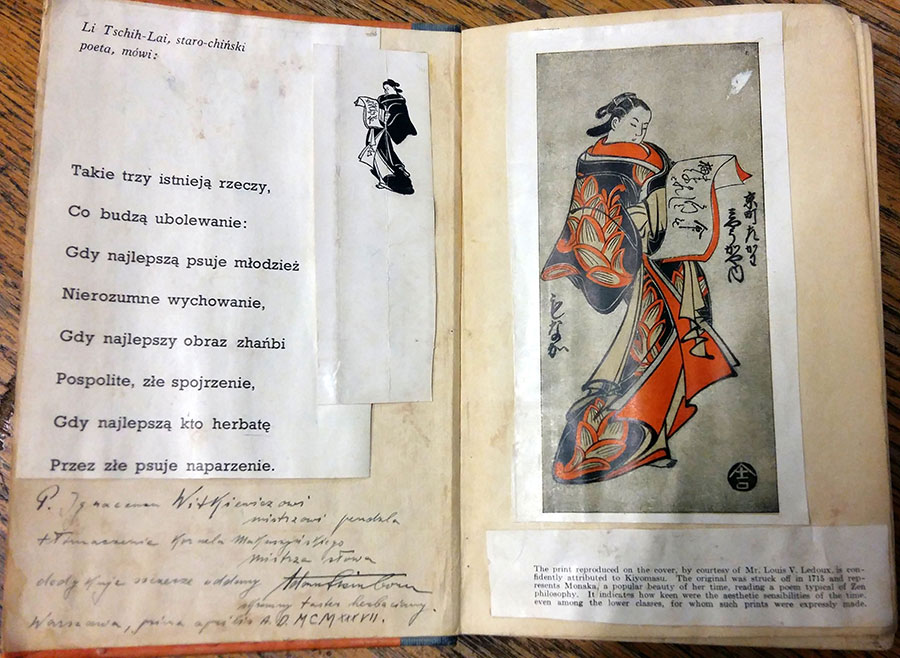 Li Tschih-Lai, staro-chiński
poeta, mówi:
Takie trzy istnieją rzeczy,
Co budzą ubolewanie:
Gdy najlepszą psuje młodzież
Nierozumne wychowanie,
Gdy najlepszy obraz zhańbi
Pospolite, złe spojrzenie,
Gdy najlepszą kto herbatę
Przez złe psuje naparzenie.
P. Ignacemu Witkiewiczowi
mistrzowi pendzla
tłomaczenie Kornela Makuszyńskiego
mistrza słowa
dedykuje szczerze oddany
skromny taster herbaciany.
Warszawa, prima aprilis A.D. MCMXXXVII.
京町たかまや内
もなか
The print reproduced on the cover, by courtesy of Mr. Louis V. Ledoux, is con-
fidently attributed to Kiyomasu. The original was struck off in 1715 and rep-
resents Monaka, a popular beauty of her time, reading a poem typical of Zen
philosophy. It indicates how keen were the aesthetic sensibilities of the time,
even among the lower classes, for whom such prints were expressly made.